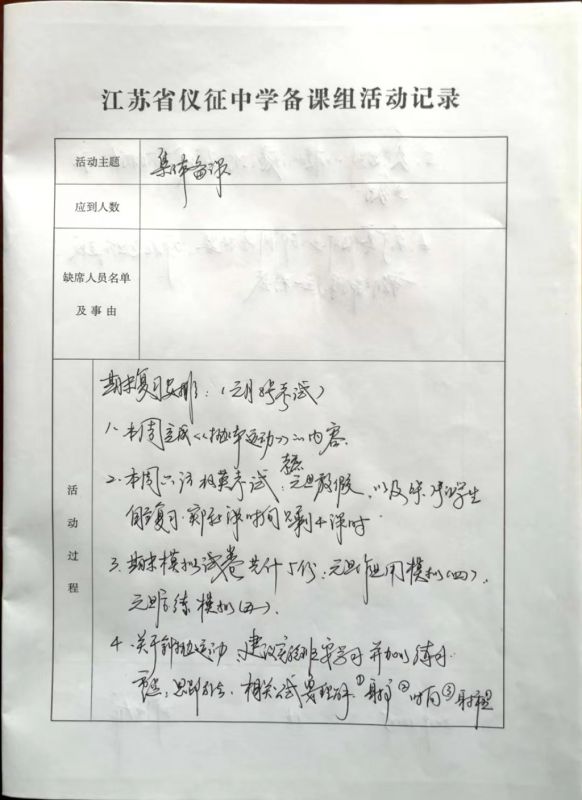 江苏省仪征中学备课组活动记录
活动主题
集体备课
应到人数
缺席人员名单
及事由
活动过程
期末复习安排：（元月 考试）
1、本周完成《抛体运动》的内容
2、本周六语数英考试，考虑元旦放假，以及 学生
自主复习，实际课时间只剩4课时
3、期末模拟试卷共计5份，元旦作业用模拟(四)，
元旦后练模拟(五)、
4、关于斜抛运动，建议实验班要学习并加以练习
 相关 要理解①射高②时间③射程